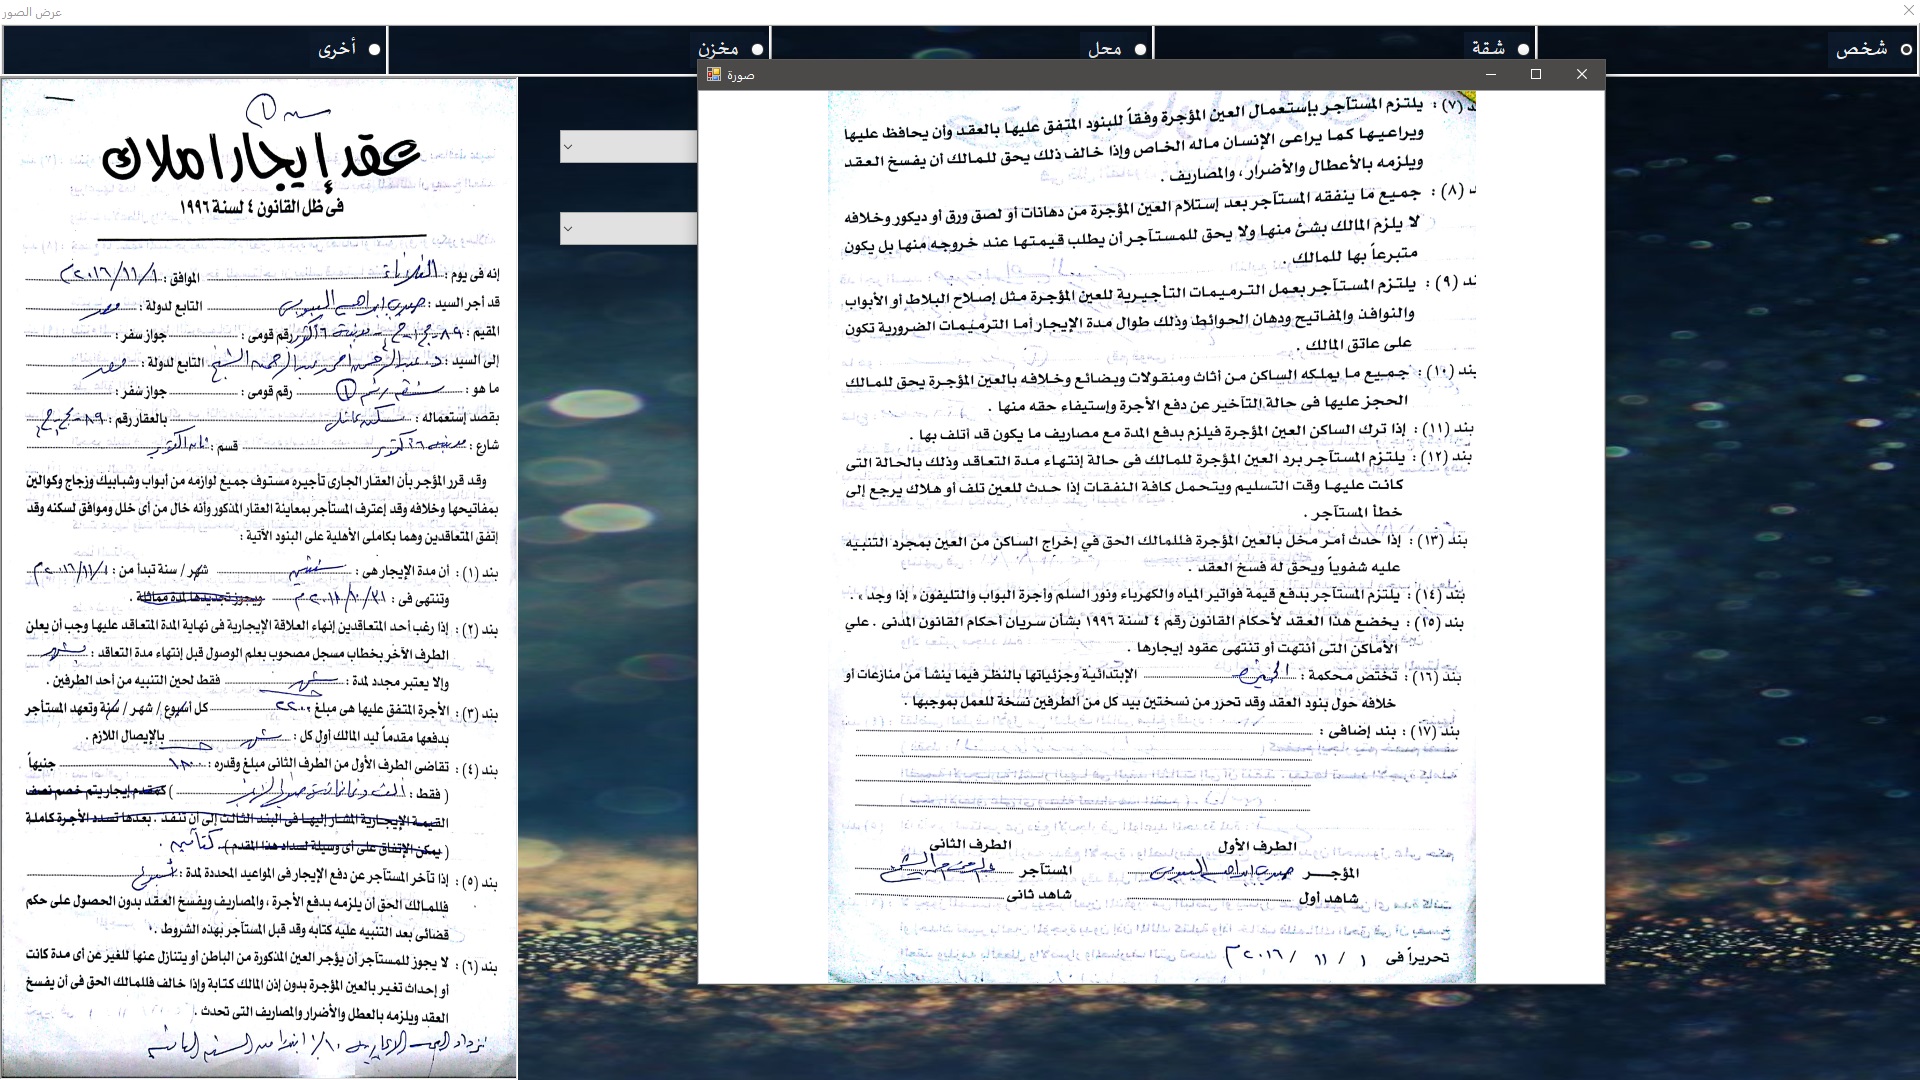 عرض الصور
شخص
شقة
محل
مخزن
أخرى
صورة
عقد إيجار املاك
فى ظل القانون ٤ لسنة ١٩٩٦
إنه فى يوم : الثلاثاء الموافق : ٢٠١٦/١١/١ م
قد أجر السيد : صبرى ابراهيم البيومى التابع لدولة : مصر
المقيم : رقم قومى : جواز سفر :
إلى السيد : د. عبد الرحمن احمد عبد الرحمن الشيخ التابع لدولة : مصر
ما هو : شقه رقم ١ رقم قومى : جواز شفر :
بقصد إستعماله : سكن عائلى بالعقار رقم : ٨٩
شارع : مدينة ٦ أكتوبر قسم : أكتوبر
وقد قرر المؤجر بأن العقار الجارى تأجيره مستوف جميع لوازمه من أبواب وشبابيك وزجاج وكوالين
بمفاتيحها وخلافه وقد إعترف المستأجر بمعاينة العقار المذكور وأنه خال من أى خلل وموافق لسكنه وقد
إتفق المتعاقدين وهما بكاملى الأهلية على البنود الآتية :
بند (١) : أن مدة الإيجار هى : سنتين شهر / سنة تبدأ من : ٢٠١٦/١١/١ م
وتنتهى فى : ٢٠١٨/١٠/٣١ م ويجوز تجديدها لمدة مماثلة .
بند (٢) : إذا رغب أحد المتعاقدين إنهاء العلاقة الإيجارية فى نهاية المدة المتعاقد عليها وجب أن يعلن
الطرف الآخر بخطاب مسجل مصحوب بعلم الوصول قبل إنتهاء مدة التعاقد : بشهر
وإلا يعتبر مجدد لمدة : شهر فقط لحين التنبيه من أحد الطرفين .
بند (٣) : الأجرة المتفق عليها هى مبلغ ٢٢٠٠ كل أسبوع / شهر / سنة وتعهد المستأجر
بدفعها مقدماً ليد المالك أول كل : شهر بالإيصال اللازم .
بند (٤) : تقاضى الطرف الأول من الطرف الثانى مبلغ وقدره : ١٨٠٠ جنيهاً
( فقط : ألف وثمانمائة ) كمقدم إيجار يتم خصم نصف
القيمة الإيجارية المشار إليها فى البند الثالث إلى أن تنفذ . بعدها تسدد الأجرة كاملة
( يمكن الإتفاق على أى وسيلة لسداد هذا المقدم ) كتأمين .
بند (٥) : إذا تأخر المستأجر عن دفع الإيجار فى المواعيد المحددة لمدة : أسبوع
فللمالك الحق أن يلزمه بدفع الأجرة ، والمصاريف ويفسخ العقد بدون الحصول على حكم
قضائى بعد التنبيه عليه كتابه وقد قبل المستأجر بهذه الشروط .
بند (٦) : لا يجوز للمستأجر أن يؤجر العين المذكورة من الباطن أو يتنازل عنها للغير عن أى مدة كانت
أو إحداث تغير بالعين المؤجرة بدون إذن المالك كتابة وإذا خالف فللمالك الحق فى أن يفسخ
العقد ويلزمه بالعطل والأضرار والمصاريف التى تحدث .
تزداد القيمة الايجارية ١٠٪ ابتداء من السنه الثانية
د (٧) : يلتزم المستأجر بإستعمال العين المؤجرة وفقاً للبنود المتفق عليها بالعقد وأن يحافظ عليها
ويراعيها كما يراعى الإنسان ماله الخاص وإذا خالف ذلك يحق للمالك أن يفسخ العقد
ويلزمه بالأعطال والأضرار ، والمصاريف .
د (٨) : جميع ما ينفقه المستأجر بعد إستلام العين المؤجرة من دهانات أو لصق ورق أو ديكور وخلافه
لا يلزم المالك بشئ منها ولا يحق للمستأجر أن يطلب قيمتها عند خروجه منها بل يكون
متبرعاً بها للمالك .
ند (٩) : يلتزم المستأجر بعمل الترميمات التأجيرية للعين المؤجرة مثل إصلاح البلاط أو الأبواب
والنوافذ والمفاتيح ودهان الحوائط وذلك طوال مدة الإيجار أما الترميمات الضرورية تكون
على عاتق المالك .
بند (١٠) : جميع ما يملكه الساكن من أثاث ومنقولات وبضائع وخلافه بالعين المؤجرة يحق للمالك
الحجز عليها فى حالة التأخير عن دفع الأجرة وإستيفاء حقه منها .
بند (١١) : إذا ترك الساكن العين المؤجرة فيلزم بدفع المدة مع مصاريف ما يكون قد أتلف بها .
بند (١٢) : يلتزم المستأجر برد العين المؤجرة للمالك فى حالة إنتهاء مدة التعاقد وذلك بالحالة التى
كانت عليها وقت التسليم ويتحمل كافة النفقات إذا حدث للعين تلف أو هلاك يرجع إلى
خطأ المستأجر .
بند (١٣) : إذا حدث أمر مخل بالعين المؤجرة فللمالك الحق في إخراج الساكن من العين بمجرد التنبيه
عليه شفوياً ويحق له فسخ العقد .
بند (١٤) : يلتزم المستأجر بدفع قيمة فواتير المياه والكهرباء ونور السلم وأجرة البواب والتليفون « إذا وجد » .
بند (١٥) : يخضع هذا العقد لأحكام القانون رقم ٤ لسنة ١٩٩٦ بشأن سريان أحكام القانون المدنى . علي
الأماكن التى أنتهت أو تنتهى عقود إيجارها .
بند (١٦) : تختص محكمة : الجيزة الإبتدائية وجزئياتها بالنظر فيما ينشأ من منازعات أو
خلافه حول بنود العقد وقد تحرر من نسختين بيد كل من الطرفين نسخة للعمل بموجبها .
بند (١٧) : بند إضافى :
الطرف الأول الطرف الثانى
المؤجـــر صبرى ابراهيم البيومى المستأجر
شاهد أول شاهد ثانى
تحريراً فى ١ / ١١ / ٢٠١٦ م